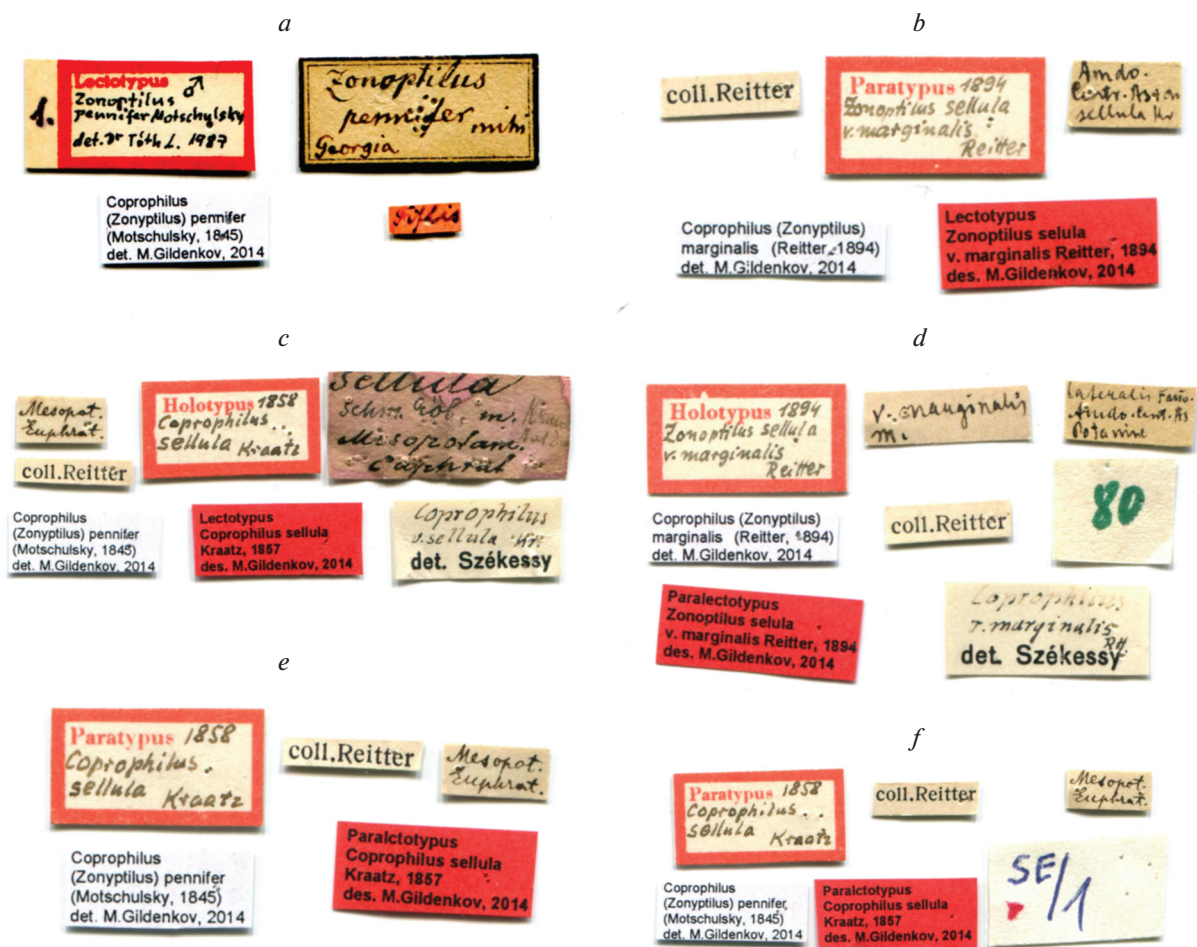 a
1.
Lectotypus ♂
Zonoptilus
pennifer Motschulsky
det. Dr Tóth L. 1987
Zonoptilus
pennifer mihi
Georgia
Coprophilus
(Zonyptilus) pennifer
(Motschulsky, 1845)
det. M.Gildenkov, 2014
Tiflis
b
coll.Reitter
Paratypus 1894
Zonoptilus sellula
v. marginalis
Reitter
Amdo.
Centr. Asien
sellula Kr
Coprophilus (Zonyptilus)
marginalis (Reitter, 1894)
det. M.Gildenkov, 2014
Lectotypus
Zonoptilus selula
v. marginalis Reitter, 1894
des. M.Gildenkov, 2014
c
Mesopot.
Euphrat.
coll.Reitter
Holotypus 1858
Coprophilus
sellula Kraatz
Sellula
Schm. Göb. m.
Misopotam.
Euphrat
Coprophilus
(Zonyptilus) pennifer
(Motschulsky, 1845)
det. M.Gildenkov, 2014
Lectotypus
Coprophilus sellula
Kraatz, 1857
des. M.Gildenkov, 2014
Coprophilus
v. sellula Kr.
det. Székessy
d
Holotypus 1894
Zonoptilus sellula
v. marginalis
Reitter
v. marginalis
m.
lateralis Fauv.
Amdo. Cent. As
Potanine
Coprophilus (Zonyptilus)
marginalis (Reitter, 1894)
det. M.Gildenkov, 2014
coll.Reitter
80
Paralectotypus
Zonoptilus selula
v. marginalis Reitter, 1894
des. M.Gildenkov, 2014
Coprophilus
v. marginalis
Rtt.
det. Székessy
e
Paratypus 1858
Coprophilus
sellula Kraatz
coll.Reitter
Mesopot.
Euphrat.
Coprophilus
(Zonyptilus) pennifer
(Motschulsky, 1845)
det. M.Gildenkov, 2014
Paralctotypus
Coprophilus sellula
Kraatz, 1857
des. M.Gildenkov, 2014
f
Paratypus 1858
Coprophilus
sellula Kraatz
coll.Reitter
Mesopot.
Euphrat.
Coprophilus
(Zonyptilus) pennifer,
(Motschulsky, 1845)
det. M.Gildenkov, 2014
Paralctotypus
Coprophilus sellula
Kraatz, 1857
des. M.Gildenkov, 2014
SE/1